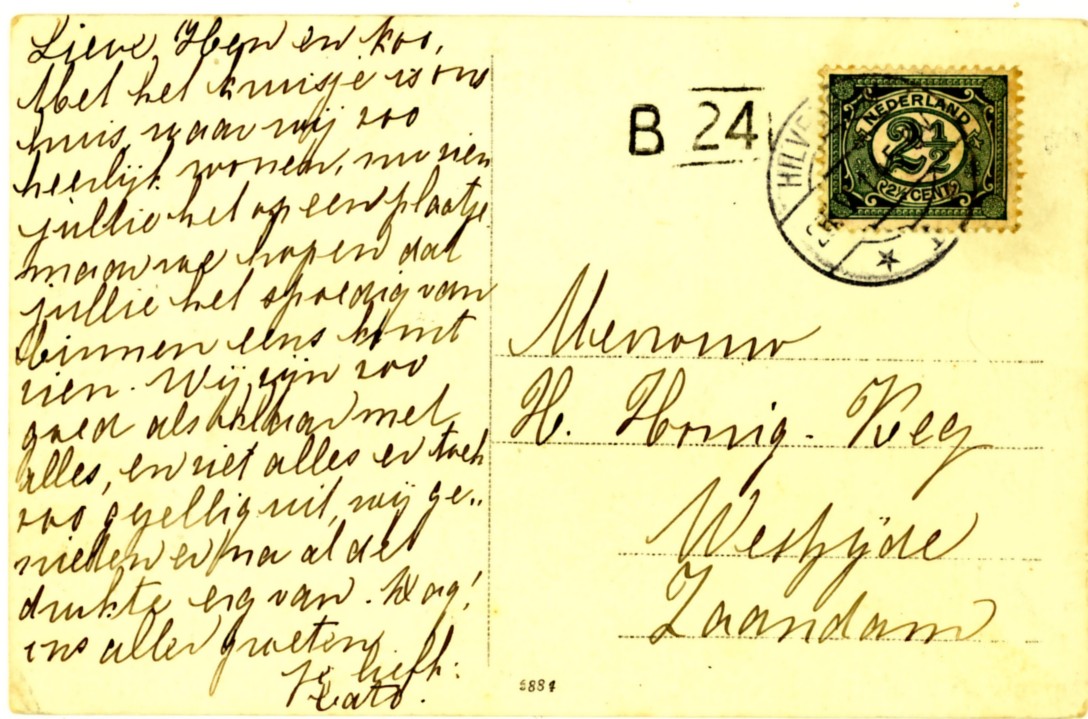 Lieve Hen en Koo,
Met het kruisje is ons
huis, waar wij zoo
heerlijk wonen, nu zien
jullie het op een plaatje
maar we hopen dat
jullie het spoedig van
binnen eens komt
zien. Wij zijn zoo
goed als klaar met
alles, en ziet alles er toch
zoo gezellig uit, wij ge..
nieten er na al de
drukte erg van. Dag!
ons aller groeten
je liefh:
Cato.
B 24
HILVE
NEDERLAND
2½
2½ CENT
Mevrouw
H. Honig-Keg
Westzijde
Zaandam